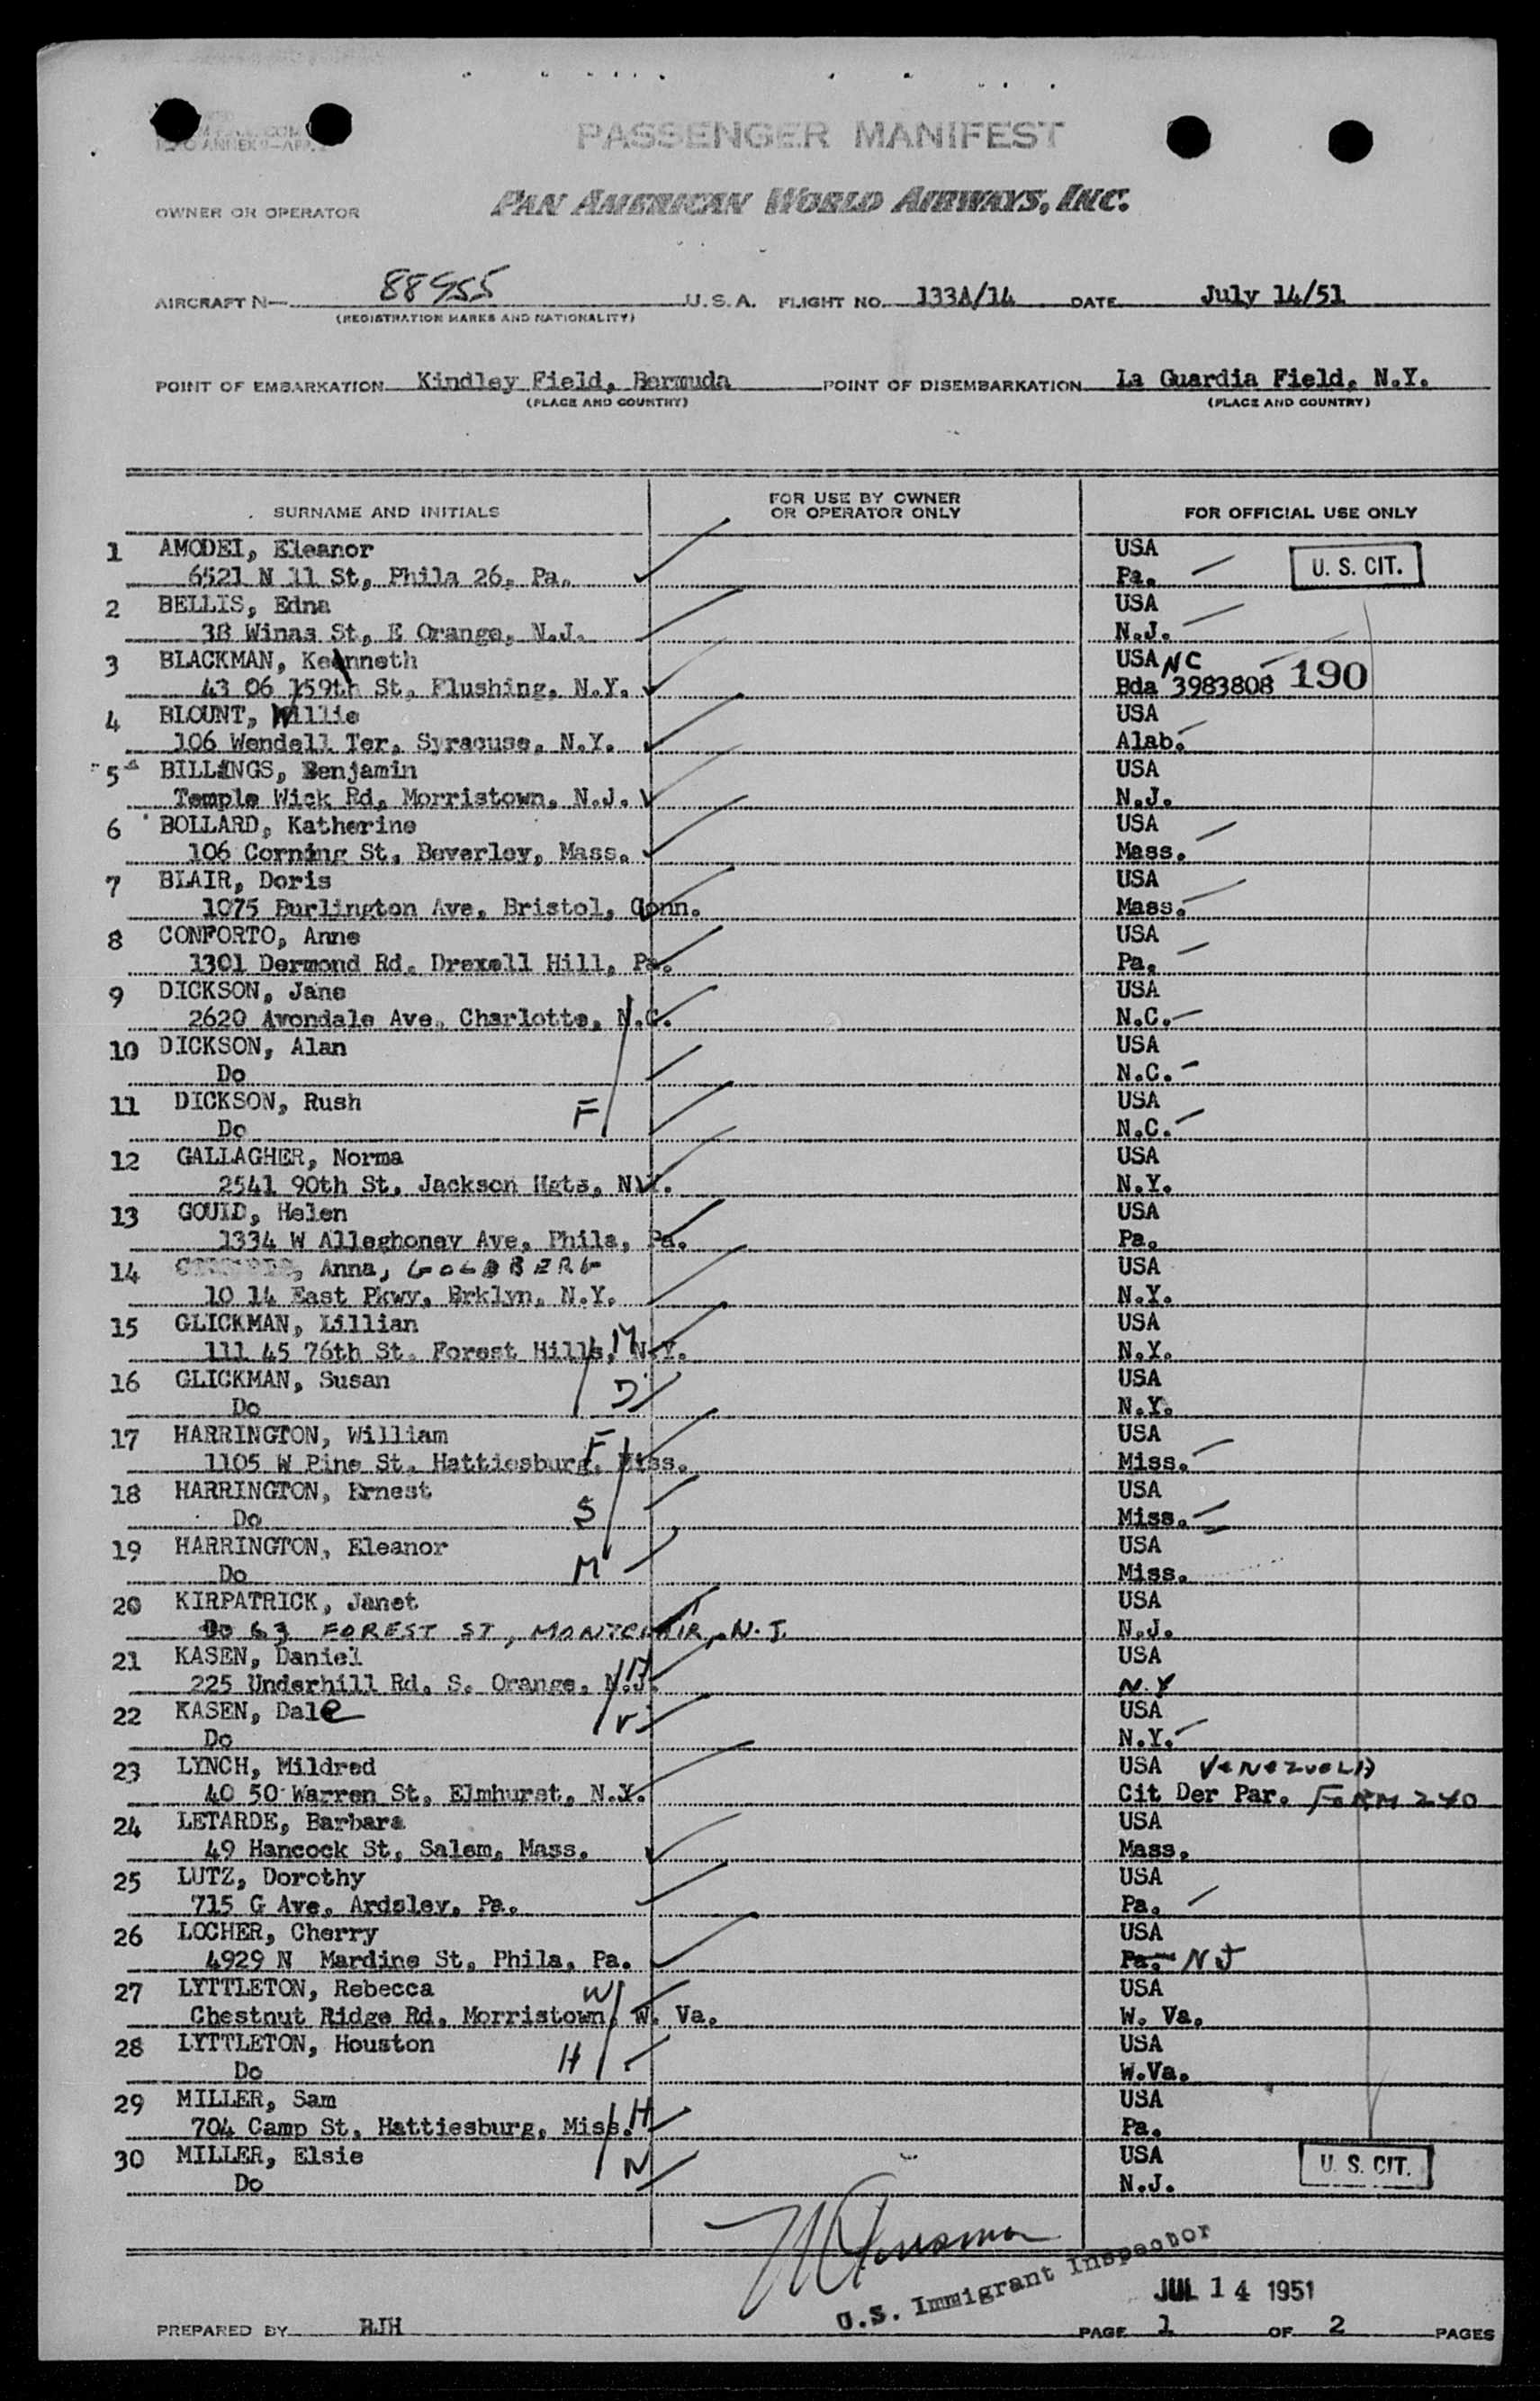 PASSENGER MANIFEST
OWNER OR OPERATOR PAN AMERICAN WORLD AIRWAYS, INC.
AIRCRAFT N— 88955 U.S.A. FLIGHT NO. 133A/14 DATE July 14/51
(REGISTRATION MARKS AND NATIONALITY)
POINT OF EMBARKATION Kindley Field, Bermuda POINT OF DISEMBARKATION La Guardia Field, N.Y.
(PLACE AND COUNTRY) (PLACE AND COUNTRY)
SURNAME AND INITIALS FOR USE BY OWNER OR OPERATOR ONLY FOR OFFICIAL USE ONLY
1 AMODEI, Eleanor USA
6521 N 11 St, Phila 26, Pa. Pa. U. S. CIT.
2 BELLIS, Edna USA
38 Winas St, E Orange, N.J. N.J.
3 BLACKMAN, Kennneth USA NC
43 06 159th St, Flushing, N.Y. Bda 3983808 190
4 BLOUNT, Willie USA
106 Wendell Ter, Syracuse, N.Y. Alab.
5 BILLINGS, Benjamin USA
Temple Wick Rd, Morristown, N.J. N.J.
6 BOLLARD, Katherine USA
106 Corning St, Beverley, Mass. Mass.
7 BLAIR, Doris USA
1075 Burlington Ave, Bristol, Conn. Mass.
8 CONFORTO, Anne USA
1301 Dermond Rd, Drexell Hill, Pa. Pa.
9 DICKSON, Jane USA
2620 Avondale Ave, Charlotte, N.C. N.C.
10 DICKSON, Alan USA
Do N.C.
11 DICKSON, Rush F USA
Do N.C.
12 GALLAGHER, Norma USA
2541 90th St, Jackson Hgts, N.Y. N.Y.
13 GOULD, Helen USA
1334 W Alleghoney Ave, Phila, Pa. Pa.
14 Anna, GOLDBERG USA
10 14 East Pkwy, Brklyn, N.Y. N.Y.
15 GLICKMAN, Lillian USA
111 45 76th St, Forest Hills, N.Y. M N.Y.
16 GLICKMAN, Susan USA
Do D N.Y.
17 HARRINGTON, William F USA
1105 W Pine St, Hattiesburg, Miss. Miss.
18 HARRINGTON, Ernest USA
Do S Miss.
19 HARRINGTON, Eleanor USA
Do M Miss.
20 KIRPATRICK, Janet USA
Do 63 FOREST ST, MONTCLAIR, N.J. N.J.
21 KASEN, Daniel USA
225 Underhill Rd, S. Orange, N.J. H N.Y
22 KASEN, Dale USA
Do N.Y.
23 LYNCH, Mildred USA VENEZUELA
40 50 Warren St, Elmhurst, N.Y. Cit Der Par. FORM 240
24 LETARDE, Barbara USA
49 Hancock St, Salem, Mass. Mass.
25 LUTZ, Dorothy USA
715 G Ave, Ardsley, Pa. Pa.
26 LOCHER, Cherry USA
4929 N Mardine St, Phila, Pa. Pa. NJ
27 LYTTLETON, Rebecca W USA
Chestnut Ridge Rd, Morristown, W. Va. W. Va.
28 LYTTLETON, Houston H USA
Do W.Va.
29 MILLER, Sam USA
704 Camp St, Hattiesburg, Miss. H Pa.
30 MILLER, Elsie USA
Do N.J. U. S. CIT.
U.S. Immigrant Inspector
JUL 14 1951
PREPARED BY RJH PAGE 1 OF 2 PAGES